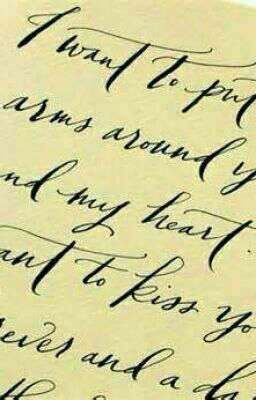 I want to put
arms around y
nd my heart.
ant to kiss yo
rever and a da